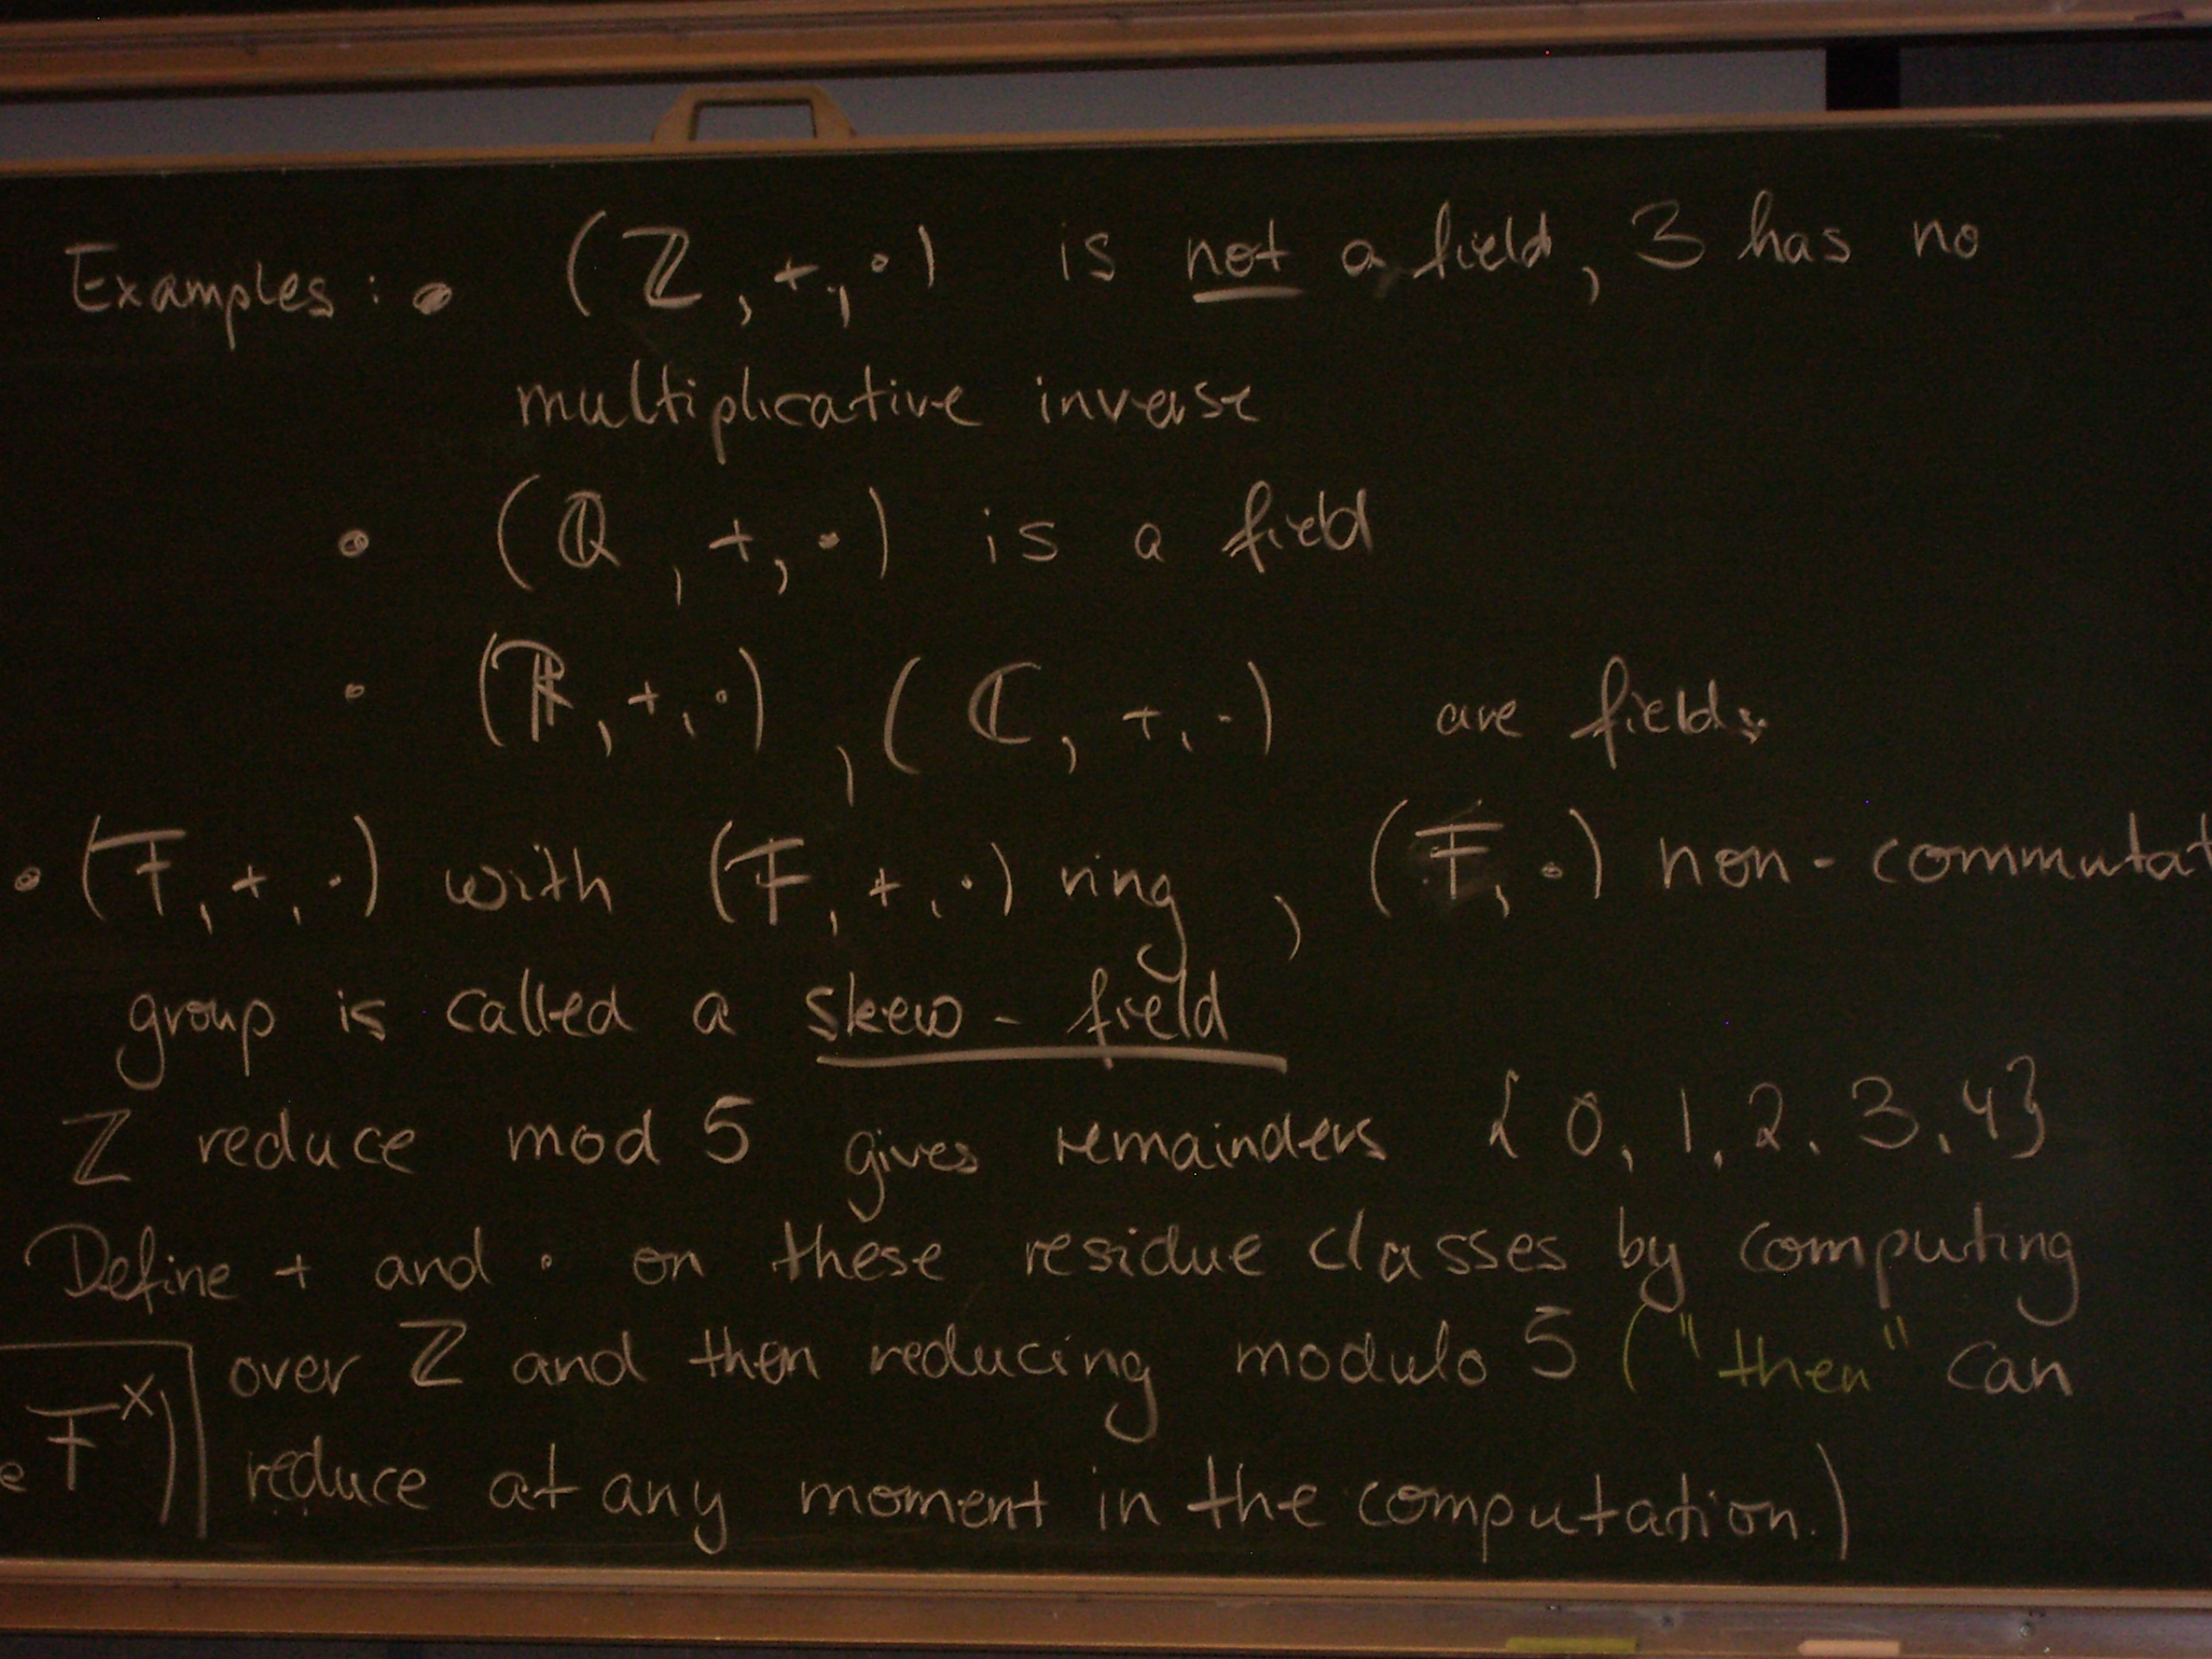 Examples: • (ℤ, +, ·) is not a field, 3 has no
multiplicative inverse
• (ℚ, +, ·) is a field
• (ℝ, +, ·), (ℂ, +, ·) are fields
• (F, +, ·) with (F, +, ·) ring, (F, ·) non-commutat
group is called a skew-field
ℤ reduce mod 5 gives remainders {0, 1, 2, 3, 4}
Define + and · on these residue classes by computing
over ℤ and then reducing modulo 5 ("then" can
e F^×)
reduce at any moment in the computation.)